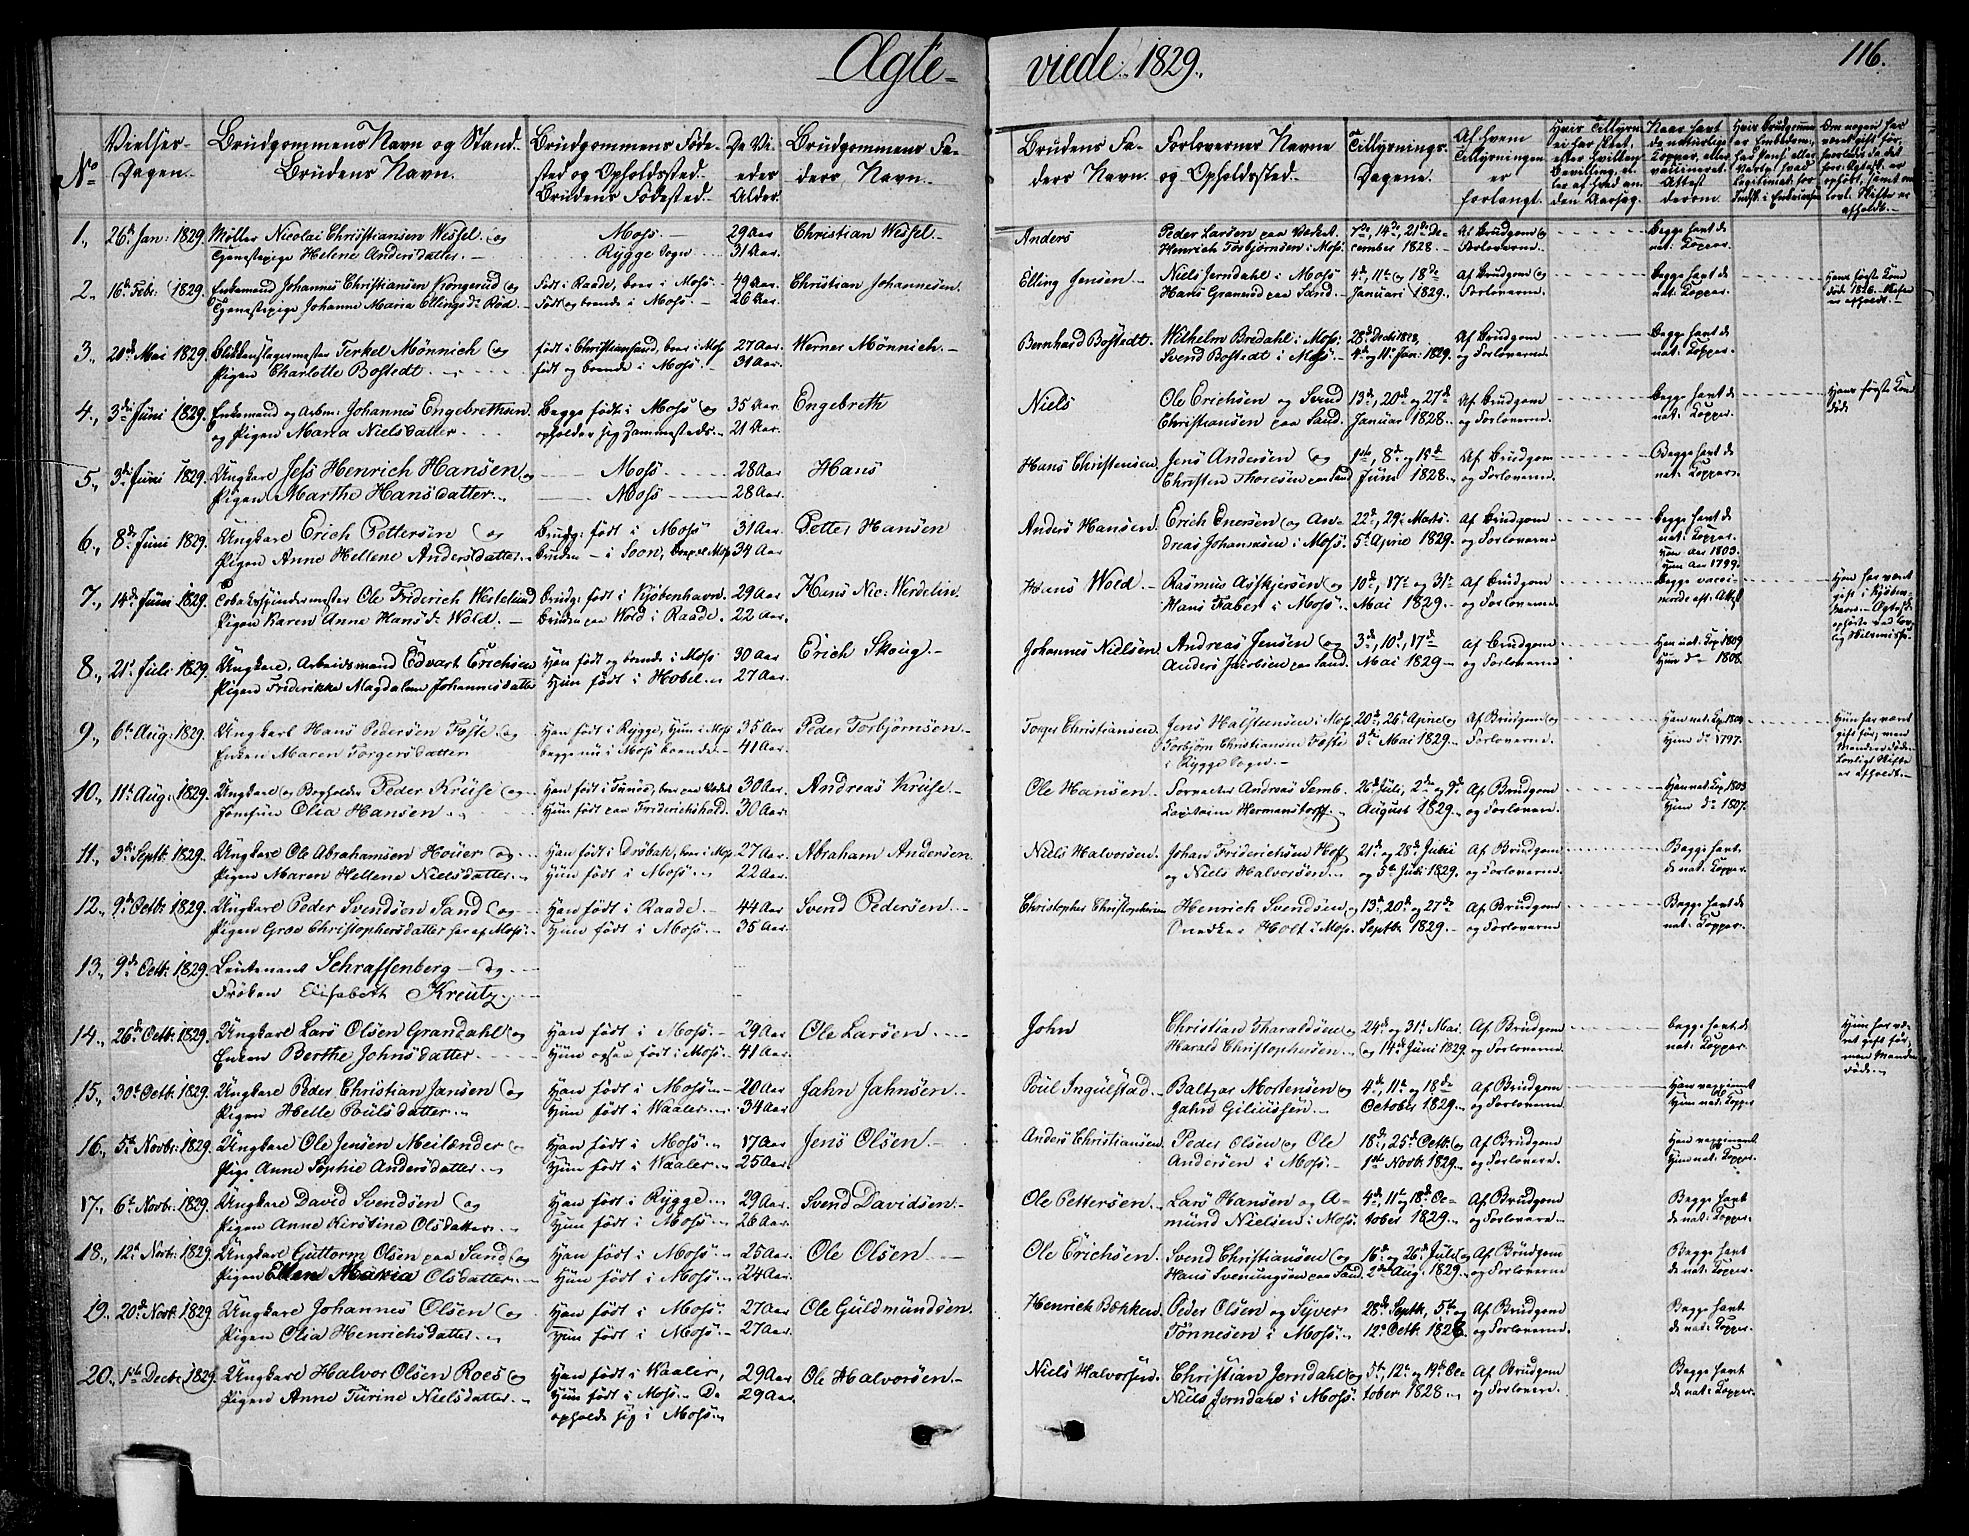 Ægte- viede 1829.
116.
No
Vielses-Dagen.
Brudgommens Navn og Stand Brudens Navn.
Brudgommens Fødested og Opholdssted. Brudens Fødested.
De Viedes Alder.
Brudgommens Faders Navn.
Brudens Faders Navn.
Forlovernes Navne og Opholdssted.
Tillysnings-Dagene.
Af hvem Tillysningen er forlangt.
1., 26d Jan: 1829. Møller Nicolai Christiansen Wessel og Moss. 29 Aar Christian Wessel. Anders Peder Larsen paa Værket 7de, 14de, 21de De- Af Brudgom og Begge havt de
Tjenestepige Helene Andersdatter. Rygge Sogn 31 Aar. Henrich Torbjørnsen i Moss. cember 1828. Forloverne. nat: Kopper.
2., 16d Febr: 1829. Enkemand Johannes Christiansen Kongerud og Født i Raade, boer i Moss. 49 Aar Christian Johannesen. Elling Jensen. Niels Jerndahl i Moss 4de, 11te og 18de Af Brudgom og Begge havt de Hans første Kone
Tjenestepige Johanne Maria Ellingsd: Rød. Født og boende i Moss. 26 Aar. Hans Granerud paa Sand. Januari 1829. Forloverne. nat: Kopper. død 1826. Skifte er afholdt.
3., 21d Mai 1829. Blikkenslagermester Terkel Mönnich og født i Christiansand, boer i Moss 27 Aar. Werner Mönnich. Bernhard Bostedt. Wilhelm Bredahl i Moss. 28de Decbr 1828, Af Brudgom Begge havt de
Pigen Charlotte Bostedt. født og boende i Moss. 31 Aar. Svend Bostedt i Moss. 4de og 11te Jan: 1829. og Forloverne. nat: Kopper.
4., 3de Juni 1829. Enkemand og Arbm: Johannes Engebrethsen Begge født i Moss og 35 Aar Engebreth Niels Ole Erichsen og Svend 13de, 20de og 27de Af Brudgom Begge havt de Hans første Kone
og Pigen Maria Nielsdatter. opholder sig sammesteds. 21 Aar. Christiansen paa Sand. Januar 1828. og Forloverne. nat: Kopper. død.
5., 3de Juni 1829. Ungkarl Jess Henrich Hansen og Moss. 28 Aar Hans Hans Christensen Jens Andersen og 1ste, 8de og 15de Af Brudgom Begge havt de
Pigen Marthe Hansdatter. Moss. 28 Aar. Christen Thoresen paa Sand Juni 1828. og Forloverne. nat: Kopper.
6., 8de Juni 1829. Ungkarl Erich Pettersen og Brudg: født i Moss 31 Aar Petter Hansen Anders Hansen. Erich Enersen og An- 22de, 29de Marts Af Brudgom Begge havt de
Pigen Anne Hellene Andersdatter. Bruden i Soon, Moss 34 Aar dreas Johannesen i Moss. 5te April 1829. og Forloverne. nat: Kopper. Han Aar 1803. Hun Aar 1799.
7., 14de Juni 1829. Tobakspindermester Ole Friderich Westelund Brudg: født i Kjøbenhavn. 29 Aar Hans Nic: Werdelin. Hans Wold. Rasmus Asskjersen og 10de, 17de og 31te Af Brudgom Begge vacci- Han har været
Pigen Karen Anne Hansd: Wold. Bruden paa Wold i Raade. 22 Aar. Hans Faber i Moss. Mai 1829. og Forloverne. nerede eft: Attest gift i Kjøben-
8., 21de Juli 1829. Ungkarl, Arbeidsmand Edvart Erichsen Han født og boende i Moss 30 Aar Erich Skoug. Johannes Nielsen. Andreas Jensen og 3de, 10de, 17de Af Brudgom Han nat: Kop: 1809
Pigen Friderikke Magdalene Johannesdatter Hun født i Hobøl. 27 Aar. Anders Jacobsen paa Sand. Mai 1829. og Forloverne. Hun do 1808.
9., 6te Aug: 1829. Ungkarl Hans Pedersen Foste og Han født i Rygge, Hun i Moss 35 Aar Peder Torbjørnsen. Torger Christiansen. Jens Halstensen i Moss 20de, 26de Aprie og Af Brudgom og Han nat: Kop: 1804 Hun har været
Enken Maren Torgersdatter begge nu i Moss boende. 41 Aar. Torbjørn Christiansen Foste i Rygge Sogn. 3de Mai 1829. Forloverne. Hun do 1797. gift før, men Manden er død. Lovligt Skifte er afholdt.
10., 11te Aug: 1829. Ungkarl og Bogholder Peder Kruse og Han født i Tunøe, boer paa Værket 30 Aar. Andreas Kruse. Ole Hansen. Forvalter Andreas Semb. 26de Juli, 2de og 9de Af Brudgom Han nat: Kop: 1803
Jomfrue Olia Hansen. Hun født paa Friderichshald. 30 Aar. Capitaine Hermanstorff August 1829. og Forlovere. Hun do 1807.
11., 3de Septb: 1829. Ungkarl Ole Abrahamsen Houer og Han født i Drøbak, boer i Moss 27 Aar Abraham Andersen. Niels Halvorsen. Johan Friderichsen Hoff 21de og 28de Juni Af Brudgom Begge havt
Pigen Maren Hellene Nielsdatter. Hun født i Moss. 22 Aar. og Niels Halvorsen. og 5te Juli 1829. og Forloverne. de nat: Kopper.
12., 9de Octb: 1829. Ungkarl Peder Svendsen Sand og Han født i Raade. 44 Aar Svend Pedersen. Christopher Christophersen Henrich Svendsen og 13de, 20de og 27de Af Brudgom Begge havt de
Pigen Groe Christophersdatter her af Moss. Hun født i Moss. 35 Aar. Holt i Moss. Septb: 1829. og Forloverne. nat: Kopper.
13., 9de Octb: 1829. Lieutenant Schraffenberg og
Frøken Elisabeth Kreutz.
14., 26de Octb: 1829. Ungkarl Lars Olsen Grandahl og Han født i Moss. 29 Aar Ole Larsen. John Christian Tharaldsen og 24de og 31te Mai. Af Brudgom Begge havt de Hun har væ-
Enken Berthe Johnsdatter. Hun ogsaa født i Moss. 41 Aar. Harald Christophersen. og 14de Juni 1829. og Forloverne. nat: Kopper. ret gift før, men Manden døde.
15., 30te Octb: 1829. Ungkarl Peder Christian Jansen og Han født i Moss. 20 Aar Jahn Jahnsen. Poul Ingulstad. Baltzar Mortensen og 4de, 11te og 18de Af Brudgom Han vaccineret
Pigen Helle Poulsdatter. Hun født i Waaler. 34 Aar. Jahnd Giliussen. October 1829. og Forloverne. Hun nat: Kopper
16., 5te Novbr: 1829. Ungkarl Ole Jensen Meilænder og Han født i Moss. 17 Aar Jens Olsen. Anders Christiansen. Peder Olsen og Ole 18de, 25de Octb: og Af Brudgom Han vaccineret
Pige Anne Sophie Andersdatter. Hun født i Waaler. 25 Aar. Andersen i Moss. 1ste Novb: 1829. og Forlovere. Hun nat: Kopper.
17., 6te Novbr: 1829. Ungkarl David Svendsen og Han født i Rygge. 29 Aar. Svend Davidsen. Ole Pettersen. Lars Hansen og A- 4de, 11te og 18de Oc- Af Brudgom Begge havt
Pigen Anne Kirstine Olsdatter. Hun født i Moss. 26 Aar. mund Nielsen i Moss. tober 1829. og Forlovere. de nat: Kopper.
18., 12te Novb: 1829. Ungkarl Guttorm Olsen paa Sand og Han født i Moss. 25 Aar. Ole Olsen Ole Erichsen. Svend Christiansen og 16de og 26de Juli og Af Brudgom Begge havt
Pigen Ellen Maria Olsdatter. Hun født i Moss. 24 Aar. Hans Svenungsen paa Sand. 2de Aug: 1829. og Forlovere. de nat: Kopper.
19., 20de Novb: 1829. Ungkarl Johannes Olsen og Han født i Moss. 27 Aar. Ole Guldmundsen. Henrich Bækken. Peder Olsen og Syver 28de Septb, 5te og Af Brudgom Begge havt
Pigen Olia Henrichsdatter. Hun født i Moss. 27 Aar. Tønnesen i Moss. 12te Octb: 1828. og Forloverne. de nat: Kopper.
20., 1ste Decb: 1829. Ungkarl Halvor Olsen Roes og Han født i Waaler, 29 Aar Ole Halvorsen. Niels Halvorsen. Christian Jerndahl og 5te, 12te og 19de Oc- Af Brudgom Begge havt
Pigen Anne Turine Nielsdatter. Hun født i Moss. De opholde sig i Moss. 29 Aar. Niels Jerndahl i Moss. tober 1828. og Forlovere. de nat: Kopper.